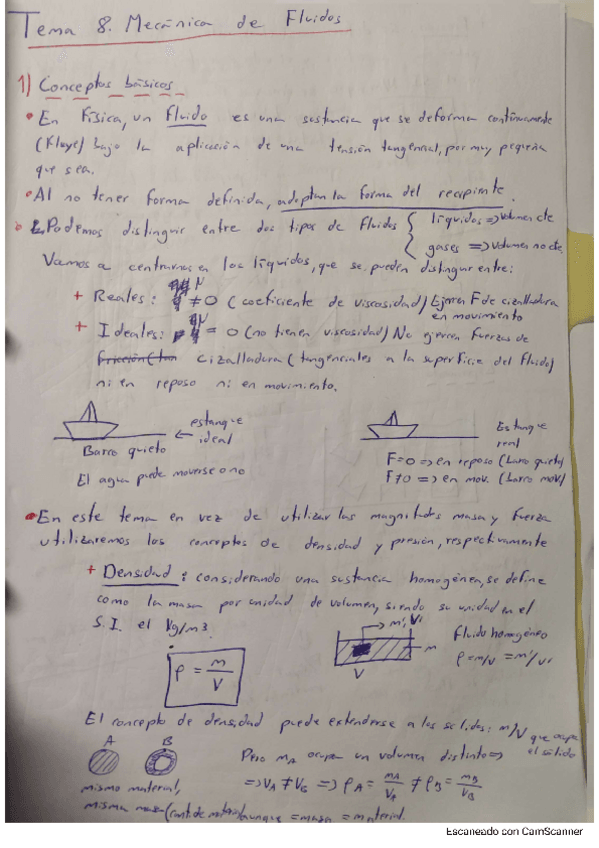 Tema 8. Mecánica de Fluidos
1) Conceptos básicos
• En Física, un Fluido es una sustancia que se deforma continuamente
(fluye) bajo la aplicación de una tensión tangencial, por muy pequeña
que sea.
• Al no tener forma definida, adoptan la forma del recipiente.
• Podemos distinguir entre dos tipos de Fluidos { líquidos => volumen cte
gases => volumen no cte.
Vamos a centrarnos en los líquidos, que se pueden distinguir entre:
+ Reales: μ ≠ 0 (coeficiente de viscosidad) Ejercen F de cizalladura
en movimiento
+ Ideales: = 0 (no tienen viscosidad) No ejercen fuerzas de
cizalladura (tangenciales a la superficie del fluido)
ni en reposo ni en movimiento.
← estanque
ideal
Barco quieto
El agua puede moverse o no
Estanque
real
F=0 => en reposo (barco quieto)
F≠0 => en mov. (barco mov)
• En este tema en vez de utilizar las magnitudes masa y fuerza
utilizaremos los conceptos de densidad y presión, respectivamente
+ Densidad: considerando una sustancia homogénea, se define
como la masa por unidad de volumen, siendo su unidad en el
S.I. el kg/m3.
ρ = m/V
m', V'
m
V
Fluido homogéneo
ρ = m/V = m'/V'
El concepto de densidad puede extenderse a los sólidos: m/V que ocupa
el sólido
A B
mismo material,
misma masa (cant. de materia)
Pero mA ocupan un volumen distinto =>
=> VA ≠ VB => ρA = mA/VA ≠ ρB = mB/VB
aunque = masa = material.
Escaneado con CamScanner